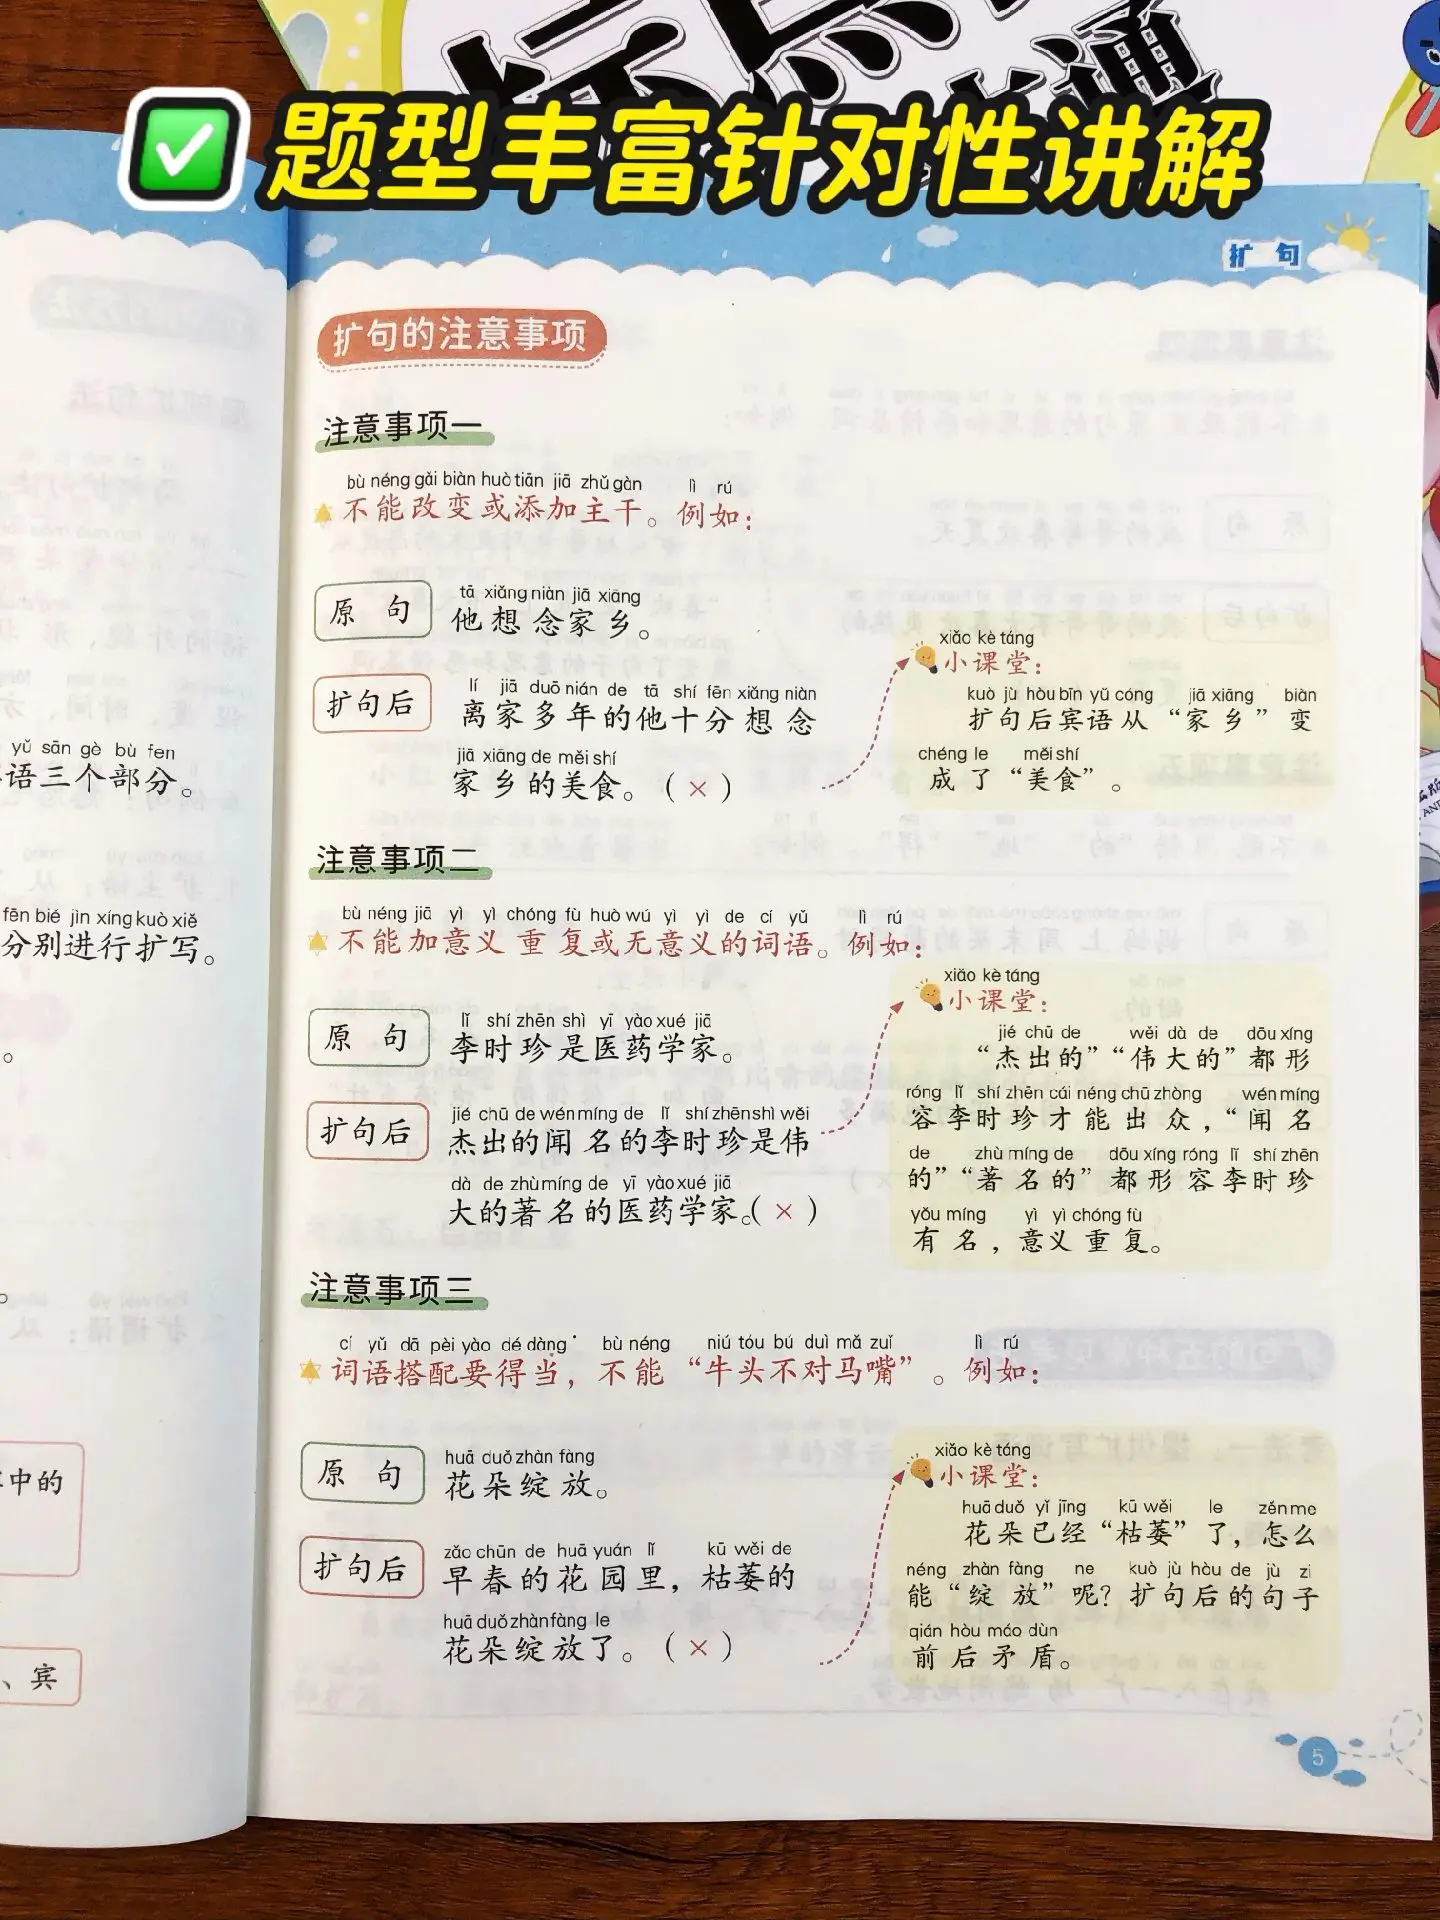 题型丰富针对性讲解
扩 句
扩句的注意事项
注意事项一
bù néng gǎi biàn huò tiān jiā zhǔ gàn lì rú
不能改变或添加主干。例如：
tā xiǎng niàn jiā xiāng
原 句 他想念家乡。
lí jiā duō nián de tā shí fēn xiǎng niàn
扩句后 离家多年的他十分想念
jiā xiāng de měi shí
家乡的美食。（×）
xiǎo kè táng
小课堂：
kuò jù hòu bīn yǔ cóng jiā xiāng biàn
扩句后宾语从“家乡”变
chéng le měi shí
成了“美食”。
注意事项二
bù néng jiā yì yì chóng fù huò wú yì yì de cí yǔ lì rú
不能加意义重复或无意义的词语。例如：
lǐ shí zhēn shì yī yào xué jiā
原 句 李时珍是医药学家。
jié chū de wén míng de lǐ shí zhēn shì wěi
扩句后 杰出的闻名的李时珍是伟
dà de zhù míng de yī yào xué jiā
大的著名的医药学家。（×）
xiǎo kè táng
小课堂：
jié chū de wěi dà de dōu xíng
“杰出的”“伟大的”都形
róng lǐ shí zhēn cái néng chū zhòng wén míng
容李时珍才能出众，“闻名
de zhù míng de dōu xíng róng lǐ shí zhēn
的”“著名的”都形容李时珍
yǒu míng yì yì chóng fù
有名，意义重复。
注意事项三
cí yǔ dā pèi yào dé dàng bù néng niú tóu bú duì mǎ zuǐ lì rú
词语搭配要得当，不能“牛头不对马嘴”。例如：
huā duǒ zhàn fàng
原 句 花朵绽放。
zǎo chūn de huā yuán lǐ kū wěi de
扩句后 早春的花园里，枯萎的
huā duǒ zhàn fàng le
花朵绽放了。（×）
xiǎo kè táng
小课堂：
huā duǒ yǐ jīng kū wěi le zěn me
花朵已经“枯萎”了，怎么
néng zhàn fàng ne kuò jù hòu de jù zi
能“绽放”呢？扩句后的句子
qián hòu máo dùn
前后矛盾。
5
yǔ sān gè bù fen
语三个部分。
fēn bié jìn xíng kuò xiě
分别进行扩写。
中的
、宾
通